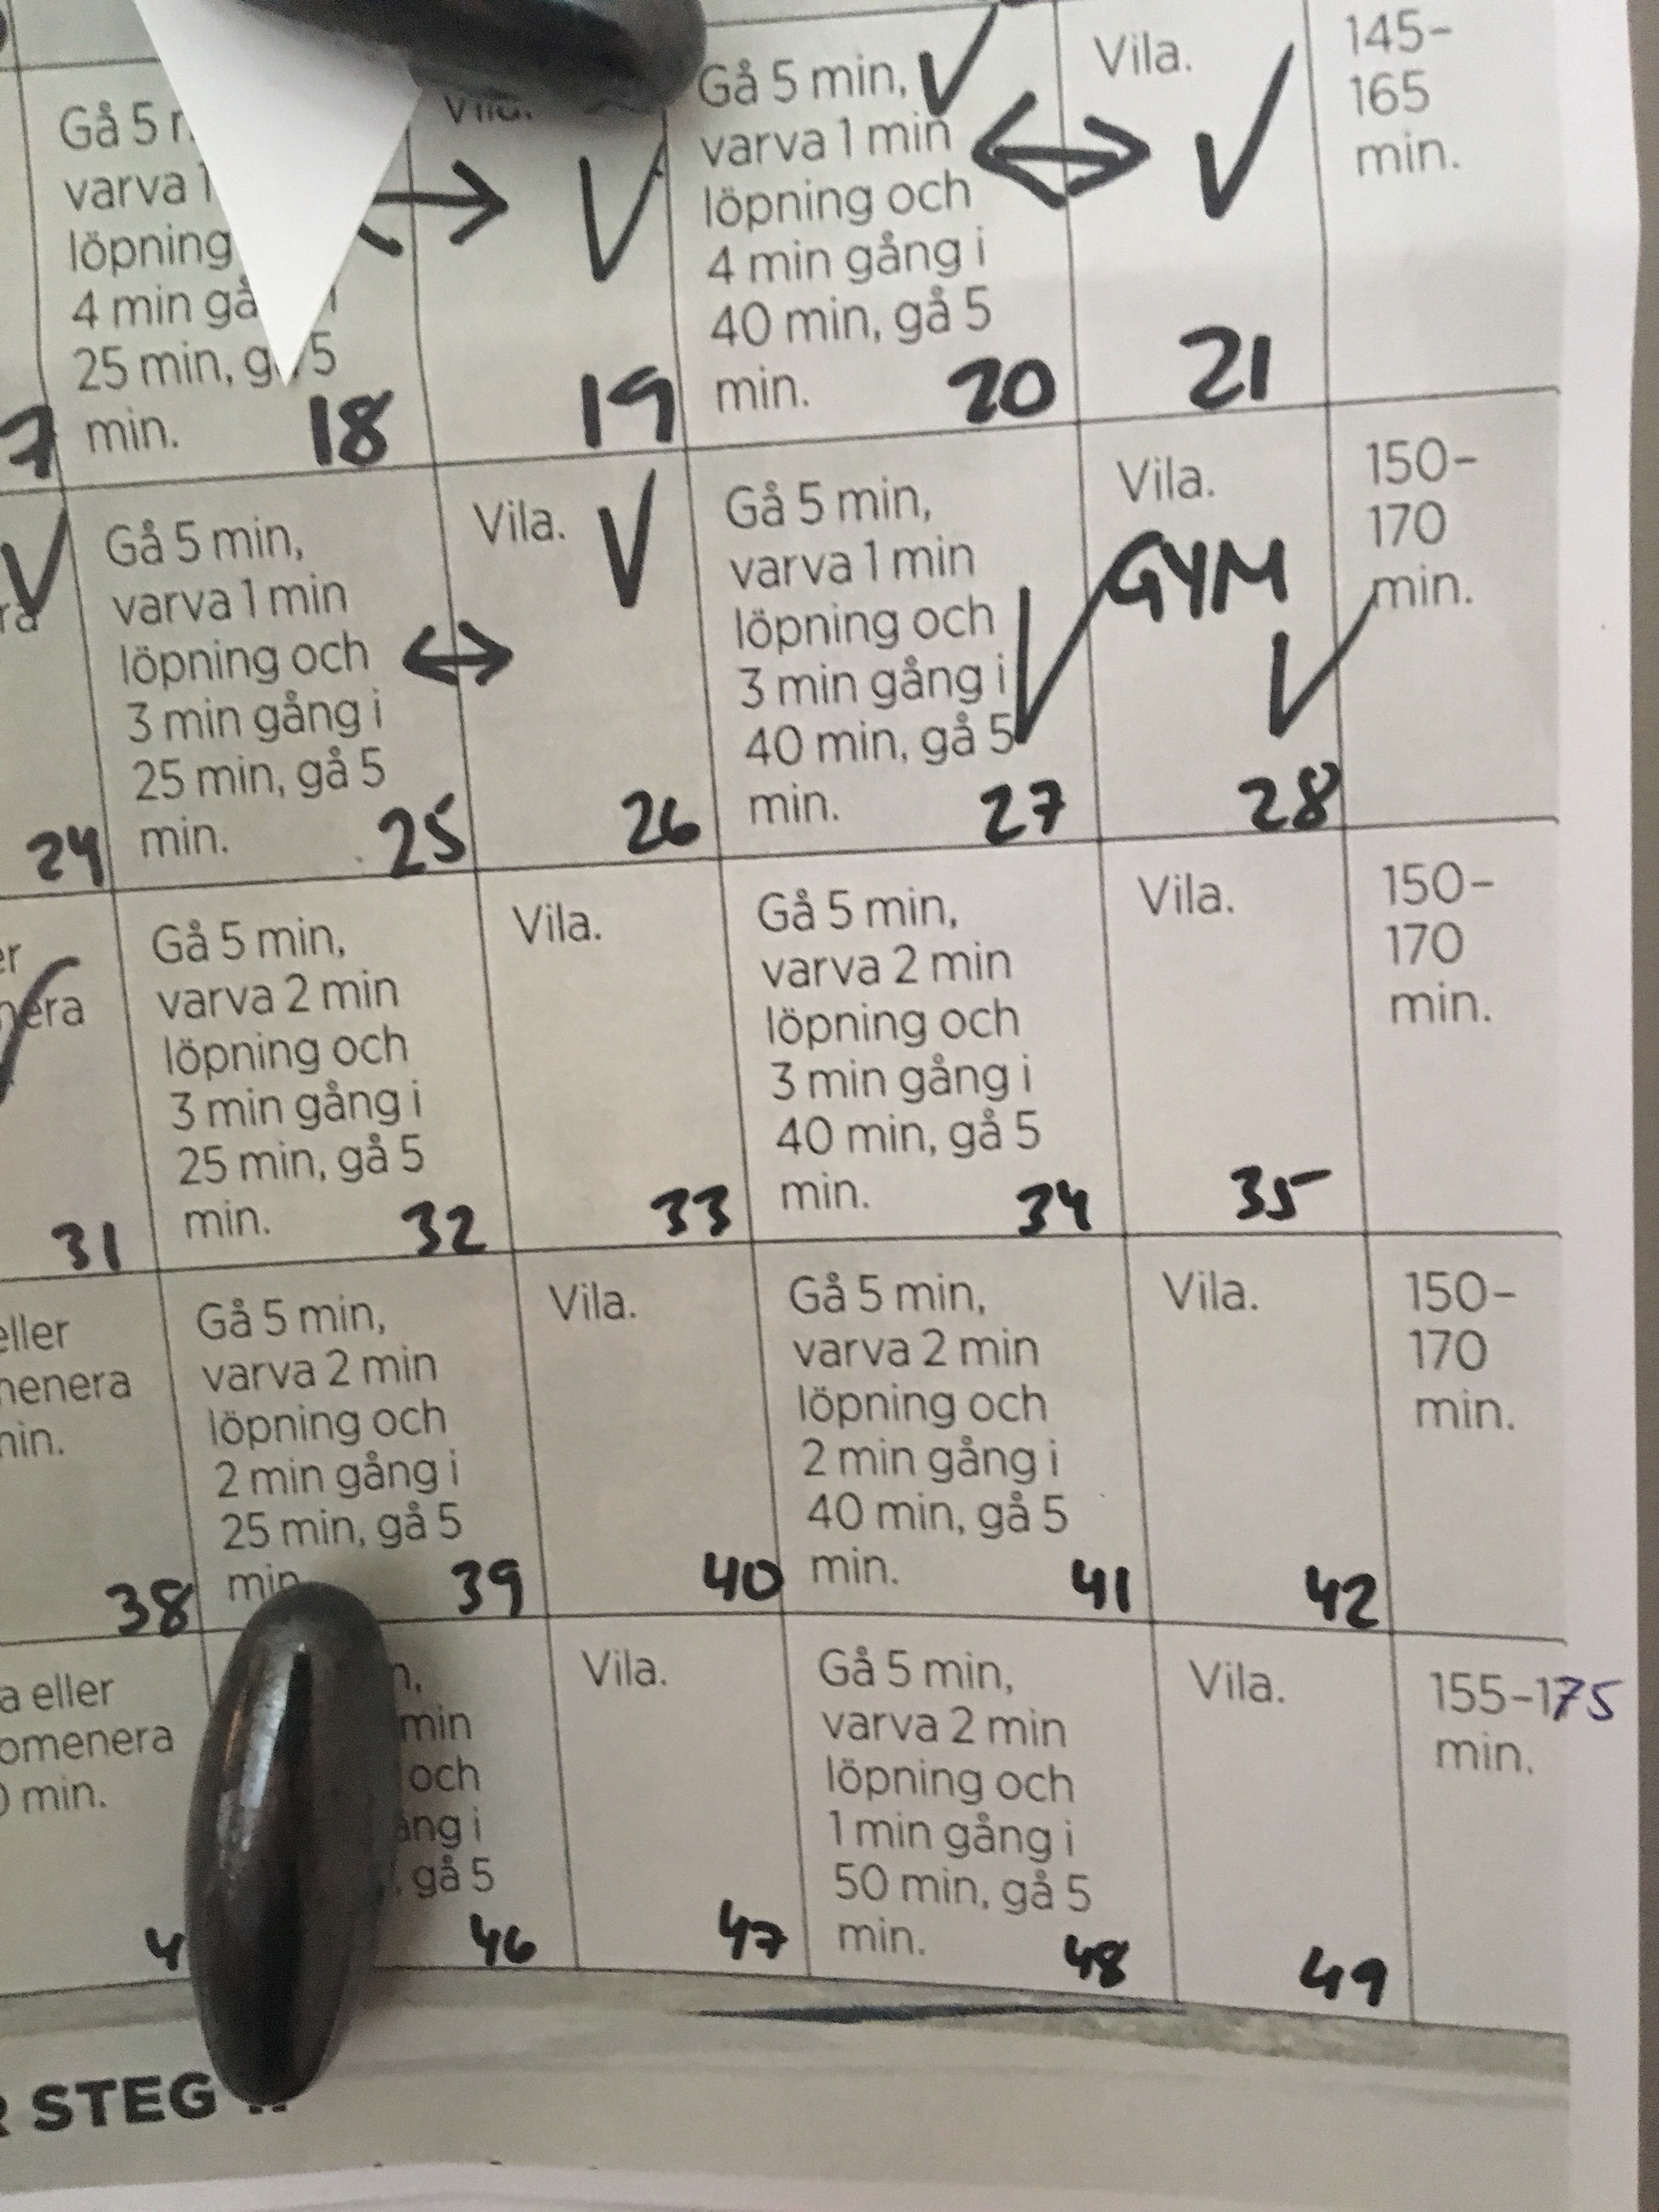 Gå 5
varva 1
löpning
4 min
25 min, 5
min.
18
Vila.
19
Gå 5 min,
varva 1 min
löpning och
4 min gång i
40 min, gå 5
min.
20
Vila.
21
145–
165
min.
24
Gå 5 min,
varva 1 min
löpning och
3 min gång i
25 min, gå 5
min.
25
Vila.
26
Gå 5 min,
varva 1 min
löpning och
3 min gång i
40 min, gå 5
min.
27
Vila.
GYM
28
150–
170
min.
31
Gå 5 min,
varva 2 min
löpning och
3 min gång i
25 min, gå 5
min.
32
Vila.
33
Gå 5 min,
varva 2 min
löpning och
3 min gång i
40 min, gå 5
min.
34
Vila.
35
150–
170
min.
eller
38
Gå 5 min,
varva 2 min
löpning och
2 min gång i
25 min, gå 5
min.
39
Vila.
40
Gå 5 min,
varva 2 min
löpning och
2 min gång i
40 min, gå 5
min.
41
Vila.
42
150–
170
min.
a eller
omenera
min.
min
och
gå 5
46
Vila.
47
Gå 5 min,
varva 2 min
löpning och
1 min gång i
50 min, gå 5
min.
48
Vila.
49
155–175
min.
STEG